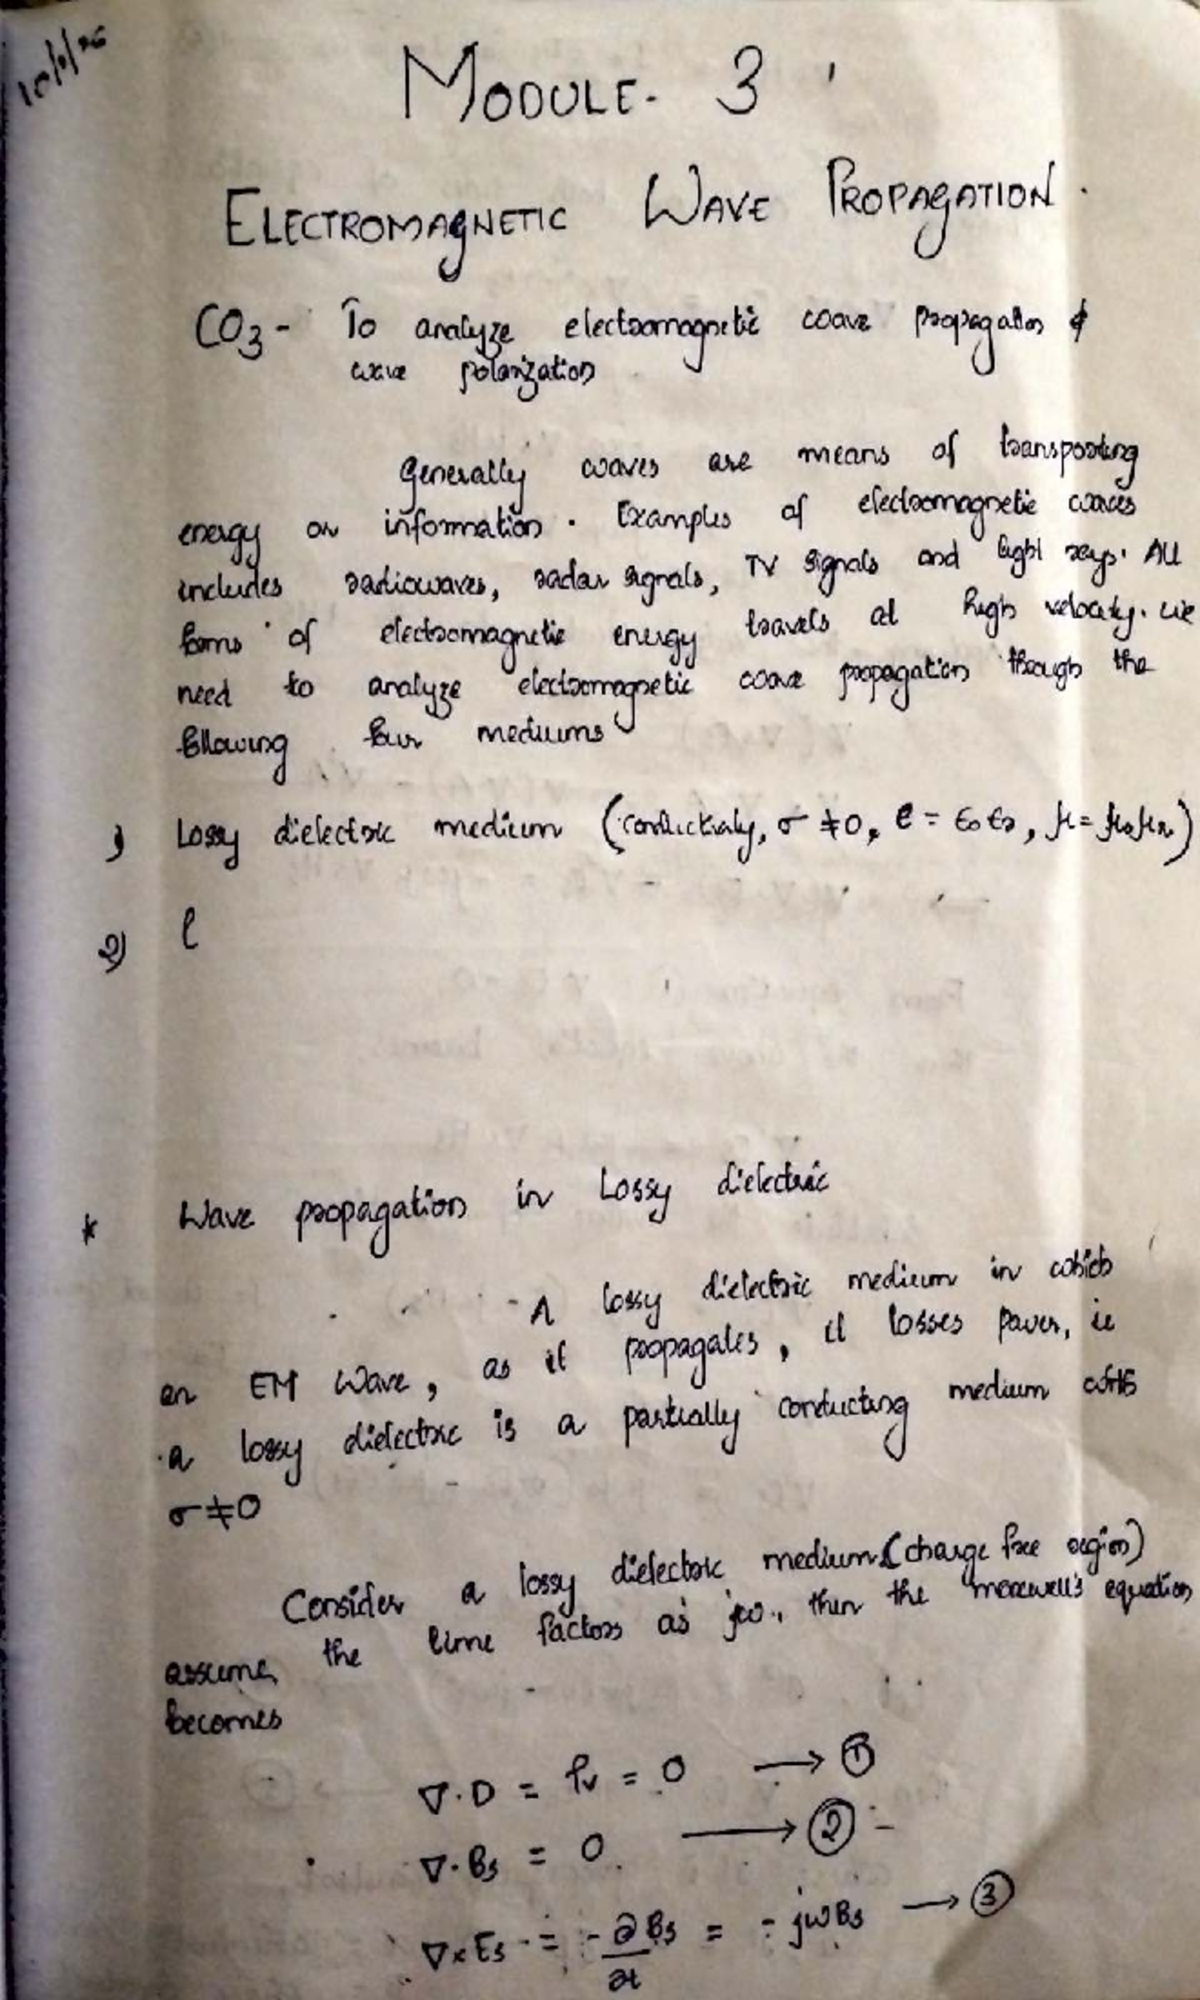 MODULE- 3
ELECTROMAGNETIC WAVE PROPAGATION.
CO3- To analyze electromagnetic wave propagation &
wave polarization
Generally waves are means of transporting
energy or information. Examples of electromagnetic waves
includes radiowaves, radar signals, TV signals and light rays. All
forms of electromagnetic energy travels at high velocity. we
need to analyze electromagnetic wave propagation through the
following four mediums
1) Lossy dielectric medium (conductivity, σ ≠ 0, ε = ε0 εr, μ = μ0μr)
2) l
* Wave propagation in Lossy dielectric
A lossy dielectric medium in which
an EM Wave, as it propagates, it losses power, ie
a lossy dielectric is a partially conducting medium with
σ ≠ 0
Consider a lossy dielectric medium (charge free region)
assume, the time factors as jω, then the maxwell's equation
becomes
∇·D = ρv = 0 → ①
∇·Bs = 0 → ②
∇×Es = -∂Bs/∂t = -jωBs → ③